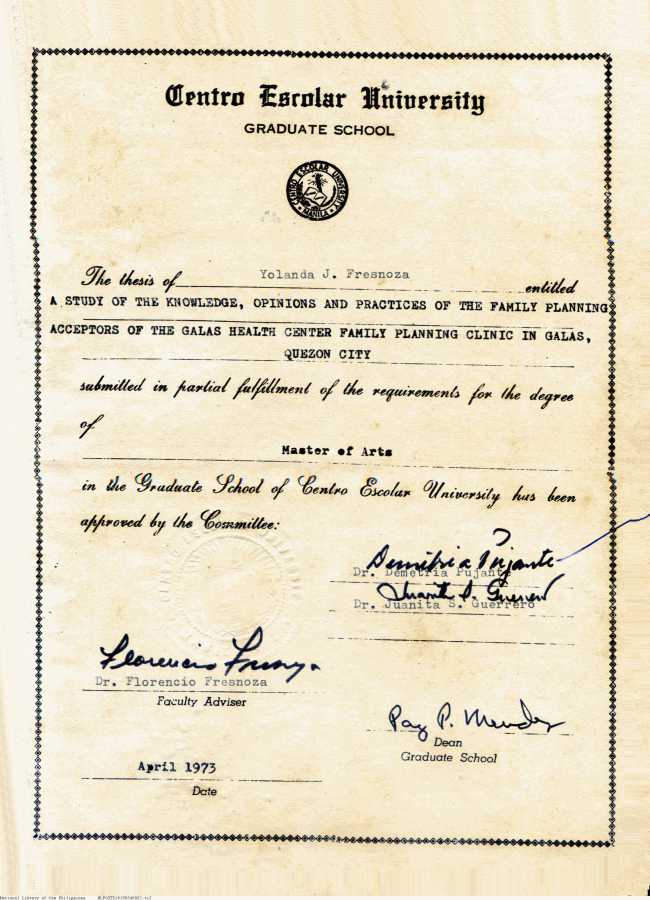 Centro Escolar University
GRADUATE SCHOOL
CENTRO ESCOLAR UNIVERSITY
MANILA
The thesis of Yolanda J. Fresnoza entitled
A STUDY OF THE KNOWLEDGE, OPINIONS AND PRACTICES OF THE FAMILY PLANNING
ACCEPTORS OF THE GALAS HEALTH CENTER FAMILY PLANNING CLINIC IN GALAS,
QUEZON CITY
submitted in partial fulfillment of the requirements for the degree
of
Master of Arts
in the Graduate School of Centro Escolar University has been
approved by the Committee:
Demetria Pujante
Dr. Demetria Pujante
Juanita S. Guerrero
Dr. Juanita S. Guerrero
Florencio Fresnoza
Dr. Florencio Fresnoza
Faculty Adviser
Paz P. Mendez
Dean
Graduate School
April 1973
Date
National Library of the Philippines